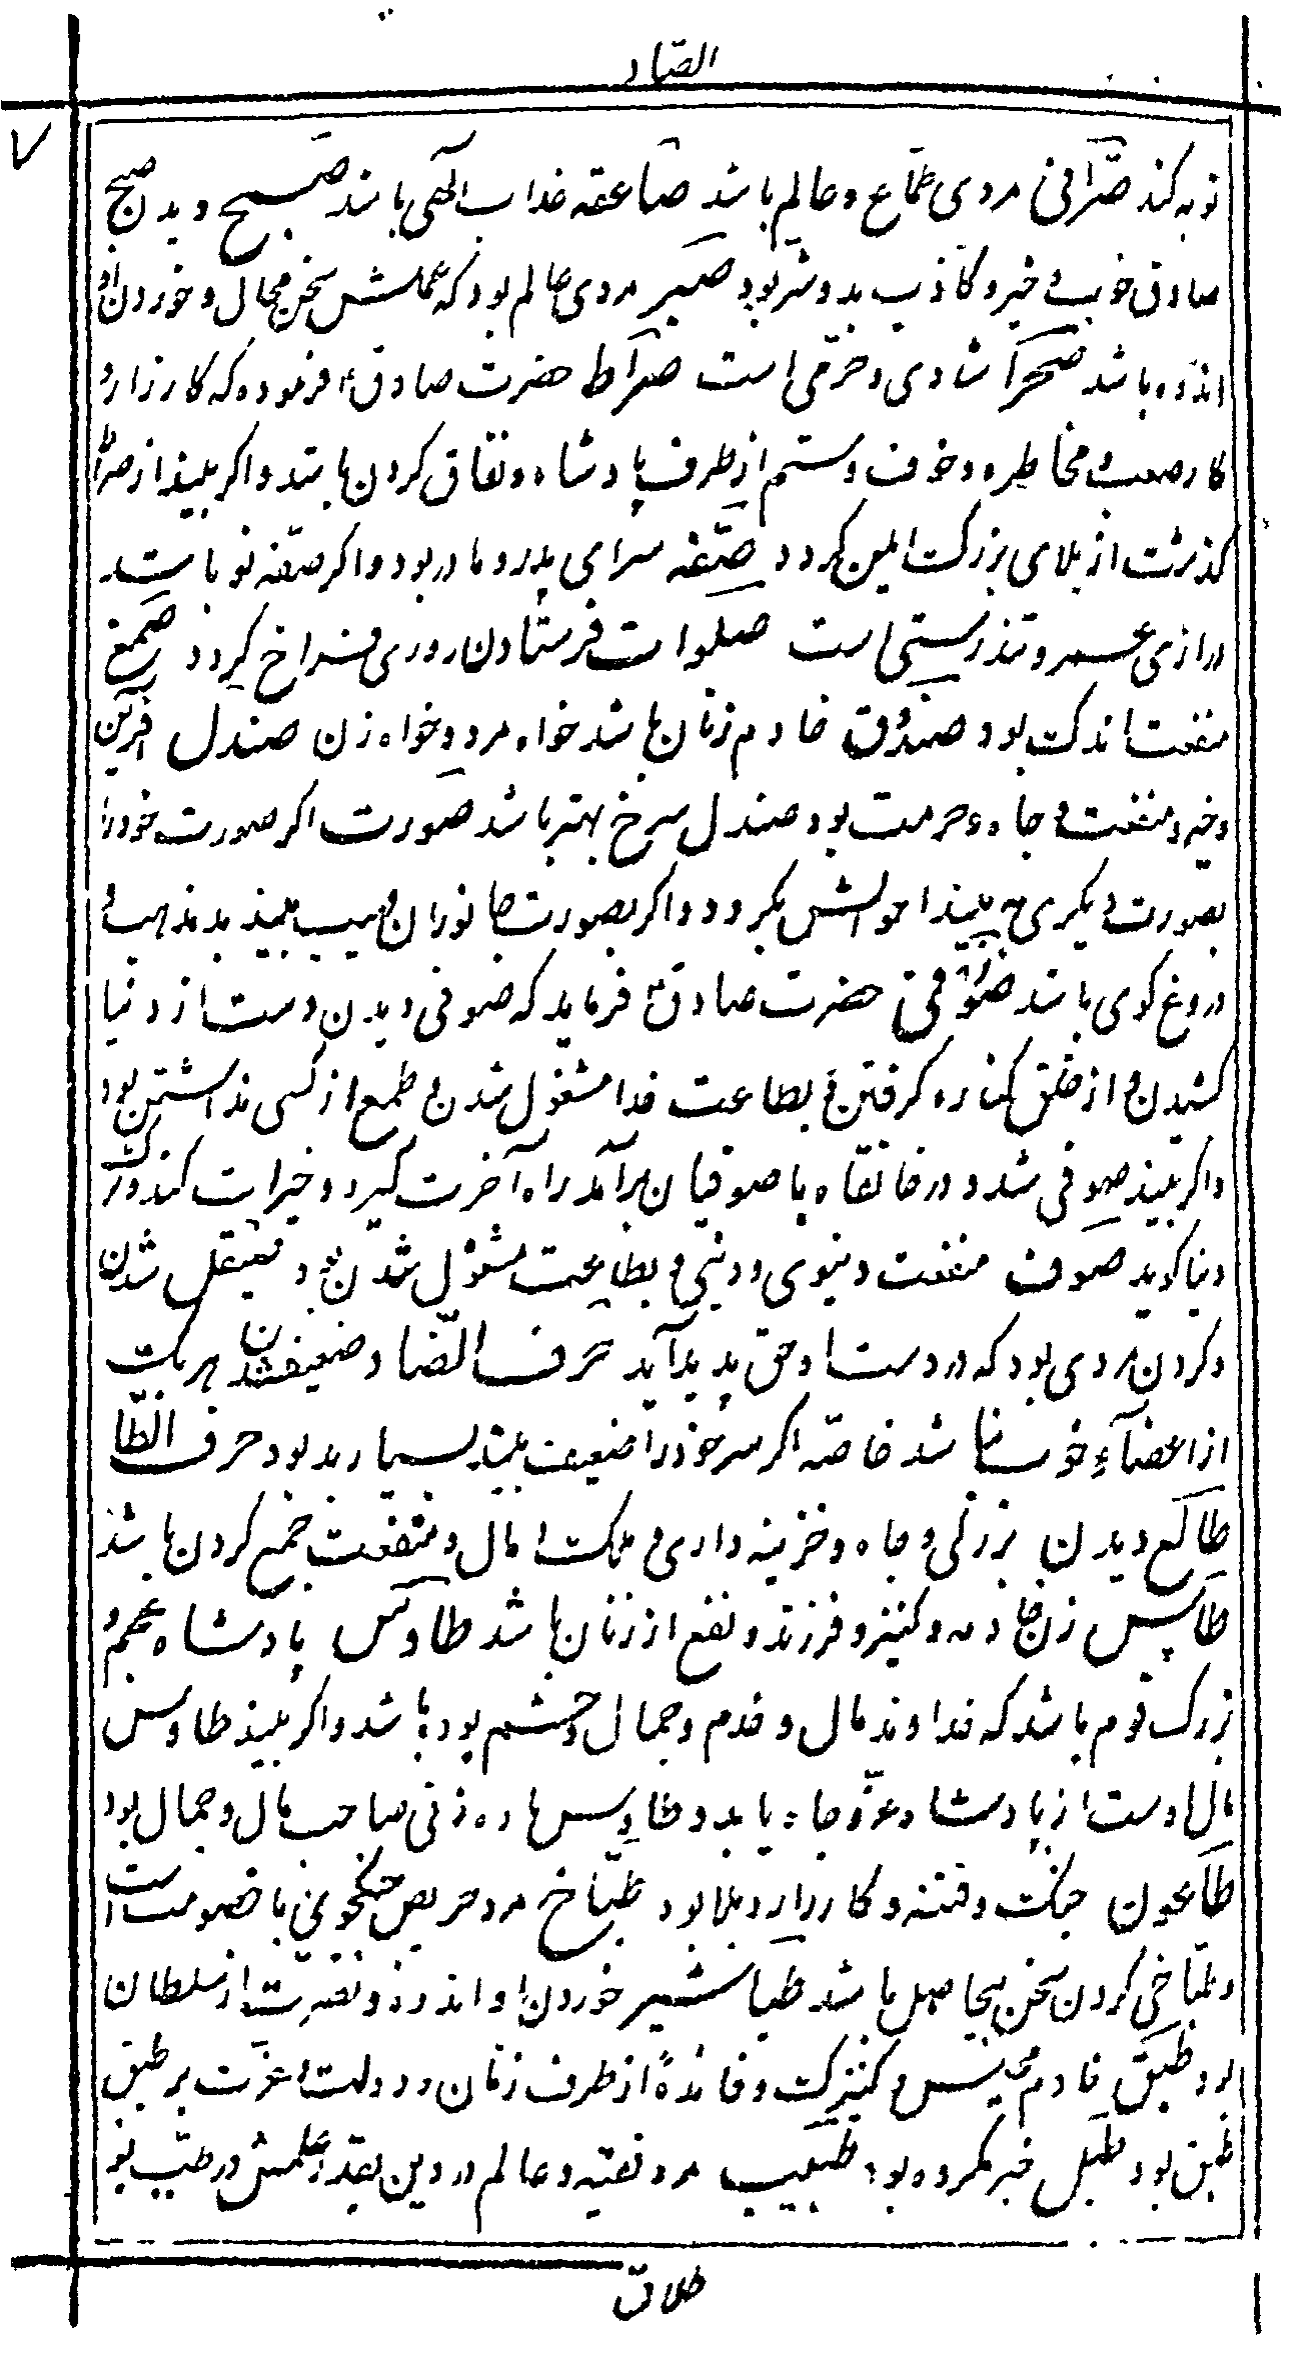 الصّاد
۷
توبه کند صرّافی مردی طمّاع و عالم باشد صاعقه عذاب الهی باشد صبح دیدن صبح
صادق خوب و خیر و کاذب بد و شر بود صبر مردی عالم بود که عملش سخن محال و خوردن او
اندوه باشد صحرا شادی و خرّمی است صراط حضرت صادق ع فرموده که کارزار و
کار صعب و مخاطره و خوف و ستم از طرف پادشاه و نفاق کردن باشد و اکر بیند از صراط
گذشت از بلای بزرک ایمن کردد صفّه سرای پدر و مادر بود و اکر صفّه نو باشد
درازی عمر و تندرستی است صلوات فرستادن روزی فراخ کردد صمغ
منفعت اندک بود صندوق خادم زنان باشد خواه مرد و خواه زن صندل آفرین
و خیر و منفعت و جاه و حرمت بود صندل سرخ بهتر باشد صورت اکر صورت خود را
بصورت دیکری بیند احوالش بکردد و اکر بصورت جانوران مهیب بیند بد مذهب و
دروغ کوی باشد صوفی حضرت صادق ع فرماید که صوفی دیدن دست از دنیا
کشیدن و از خلق کناره کرفتن و بطاعت خدا مشغول شدن و طمع از کسی نداشتن بود
و اکر بیند صوفی شد و در خانقاه با صوفیان برآمد راه آخرت کیرد و خیرات کند و ترک
دنیا کوید صوف منفعت دنیوی و دینی و بطاعت مشغول شدن بود صیقل شدن
و کردن مردی بود که در دست او حق پدید آید حرف الضّاد ضعیف شدن هر یک
از اعضآء خویش باشد خاصّه اکر سر خود را ضعیف بیند بسیار بد بود حرف الطّا
طالع دیدن بزرکی و جاه و خزینه داری و ملکت و مال و منفعت جمع کردن باشد
طاس زن خادمه و کنیز و فرزند و نفع از زنان باشد طاوس پادشاه عجم و
بزرک قوم باشد که خداوند مال و خدم و جمال و حشم بوده باشد و اکر بیند طاوس
مال اوست از پادشاه عزّ و جاه یابد و طاوس ماده زنی صاحب مال و جمال بود
طاعون جنک و فتنه و کارزار و بلا بود طبّاخ مرد حریص جنکجوی با خصومت است
و طبّاخی کردن سخن بیحاصل باشد طباشیر خوردن او اندوه و از سلطان
بود طبق خادم مجلس و کنیزک و فائدهٔ از طرف زنان و دولت و عزّت بر طبق
طبق بود طبل خبر مکروه بود طبیب مرد فقیه و عالم در دین بقدر علمش در طبّ بود
طلاق